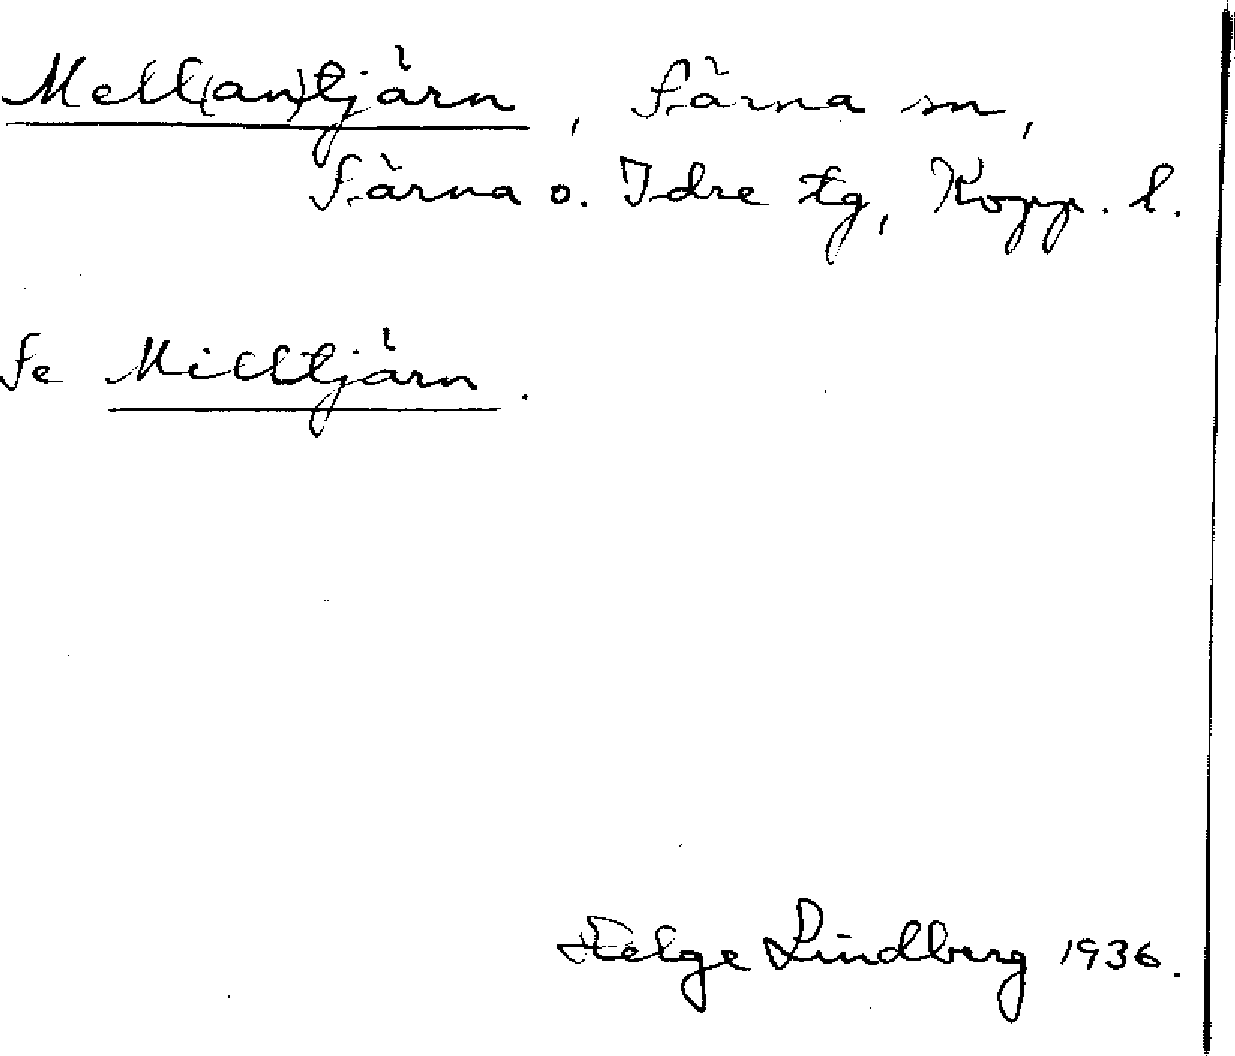 Mell(an)tjärn, Särna sn,
Särna o. Idre tg, Kopp. l.
Se Milltjärn.
Helge Lindberg 1936.